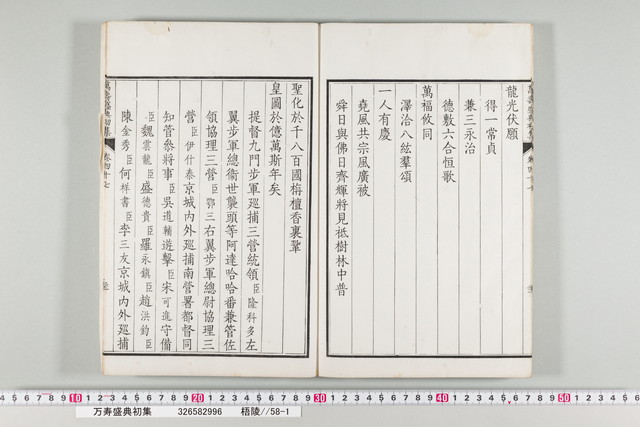 龍光伏願
得一常貞
兼三永治
德敷六合恒歌
萬福攸同
澤洽八紘羣頌
一人有慶
堯風共宗風廣被
舜日與佛日齊輝將見祗樹林中普
聖化於千八百國栴檀香裏鞏
皇圖於億萬斯年矣
提督九門步軍巡捕三營統領臣隆科多左
翼步軍總衛世襲頭等阿達哈哈番兼管佐
領協理三營臣鄂三右翼步軍總尉協理三
營臣伊什泰京城內外巡捕南營署都督同
知管參將事臣吳道輔遊擊臣宋可進守備
臣魏雲龍臣盛德貴臣羅永鎮臣趙洪鈞臣
陳金秀臣何祥書臣李三友京城內外巡捕
萬壽盛典初集
卷四十七
万寿盛典初集 326582996 梧陵//58-1
10 20 30 40 50